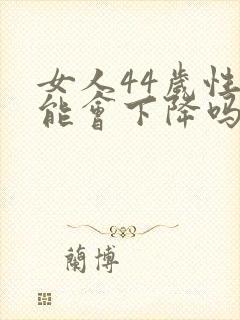 女人44歲性
能會下降吗
蘭博